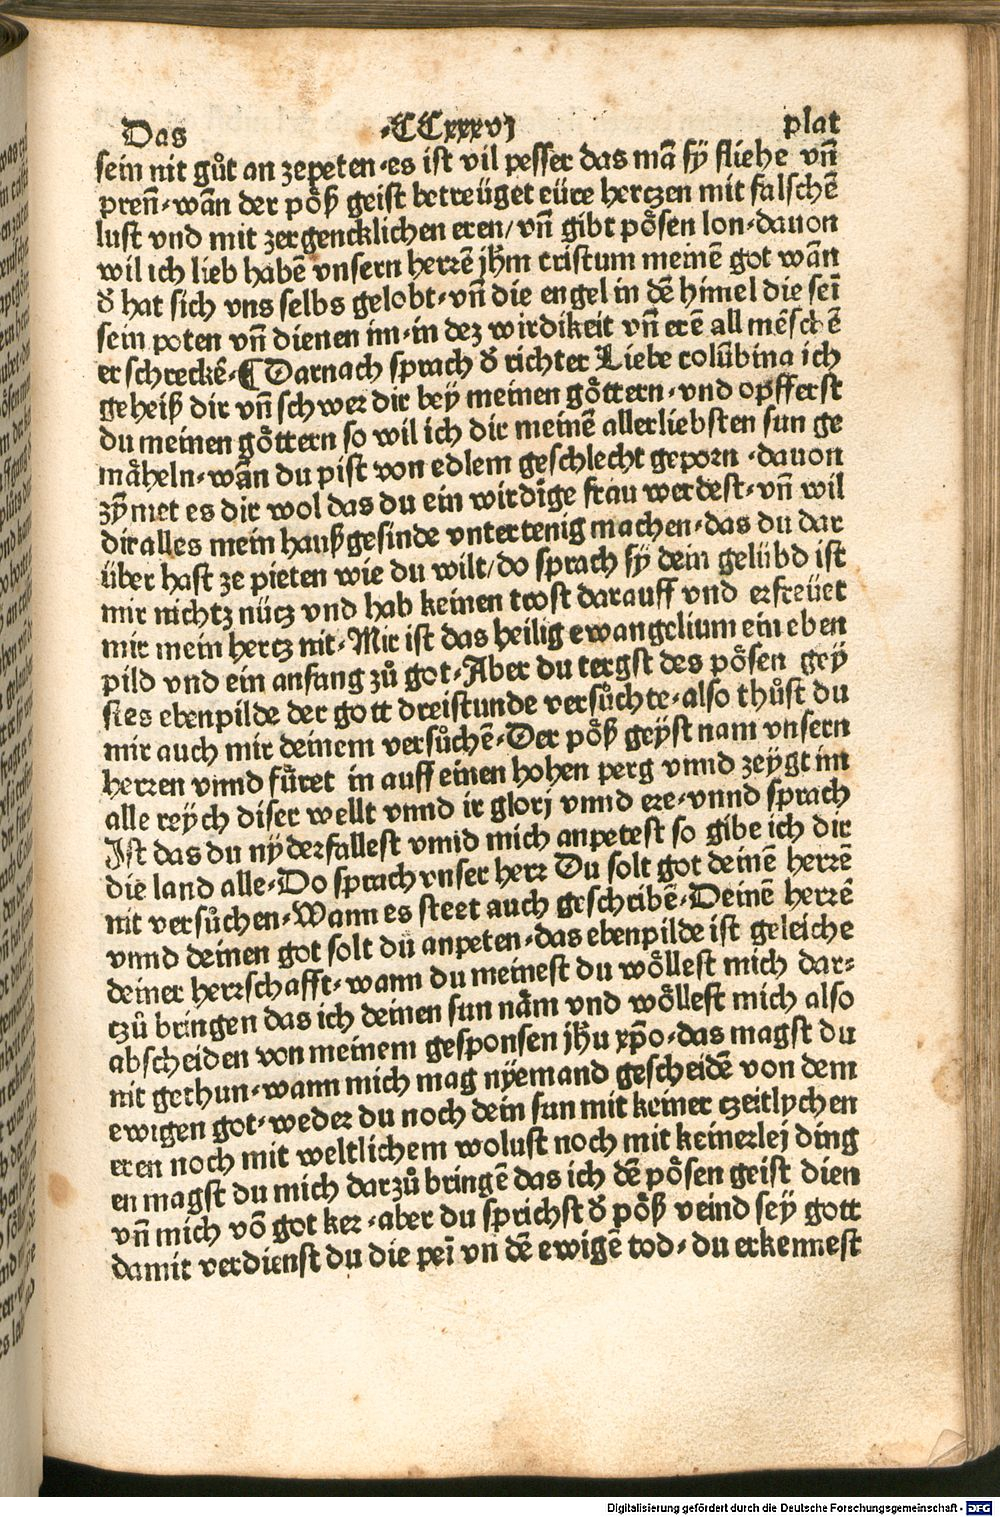 Das .CCxxxvj plat
sein nit gůt an zepeten·es ist vil pesser das mā sÿ fliehe vñ
preñ·wān der pǒß geist betreüget eüre hertzen mit falschē
lust vnd mit zergencklichen eren/vñ gibt pǒsen lon·dauon
wil ich lieb habē vnsern herrē jhm̄ cristum meinē got wān
d̕ hat sich vns selbs gelobt·vñ die engel in dē himel die seī
sein poten vñ dienen im·in dez wirdikeit vñ erē all mēschē
erschreckē·¶Darnach sprach d̕ richter Liebe colūbina ich
geheiß dir vñ schwer dir bey meinen gǒttern·vnd opfferst
du meinen gǒttern so wil ich dir meinē allerliebsten sun ge
mǎheln·wān du pist von edlem geschlecht geporn·dauon
zȳmet es dir wol das du ein wirdige frau werdest·vñ wil
dir alles mein haußgesinde vntertenig machen·das du dar
über hast ze pieten wie du wilt/do sprach sÿ dein gelübd ist
mir nichtz nücz vnd hab keinen trost darauff vnd erfreüet
mir mein hertz nit·Mir ist das heilig ewangelium ein eben
pild vnd ein anfang zů got·Aber du tergst des pǒsen geÿ
stes ebenpilde der gott dreistunde versůchte·also thůst du
mir auch mir deinem versůchē·Der pǒß geÿst nam vnsern
herren vnnd fůret in auff einen hohen perg vnnd zeÿgt im
alle reÿch diser wellt vnnd ir glorj vnnd ere·vnnd sprach
Ist das du nÿderfallest vnnd mich anpetest so gibe ich dir
die land alle·Do sprach vnser herr Du solt got deinē herrē
nit versůchen·Wann es steet auch geschribē·Deinē herrē
vnnd deinen got solt du anpeten·das ebenpilde ist geleiche
deiner herrschafft·wann du meinest du wǒllest mich dar⸗
tzů bringen das ich deinen sun nǎm vnd wǒllest mich also
abscheiden von meinem gesponsen jhu xp̄o·das magst du
nit gethun·wann mich mag nÿemand gescheidē von dem
ewigen got·weder du noch dein sun mit keiner tzeitlychen
eren noch mit weltlichem wolust noch mit keinerlej ding
en magst du mich darzů bringē das ich dē pǒsen geist dien
vñ mich vō got ker·aber du sprichst d̕ pǒß veind sey gott
damit verdienst du die peī vn dē ewigē tod·du erkennest
Digitalisierung gefördert durch die Deutsche Forschungsgemeinschaft - DFG